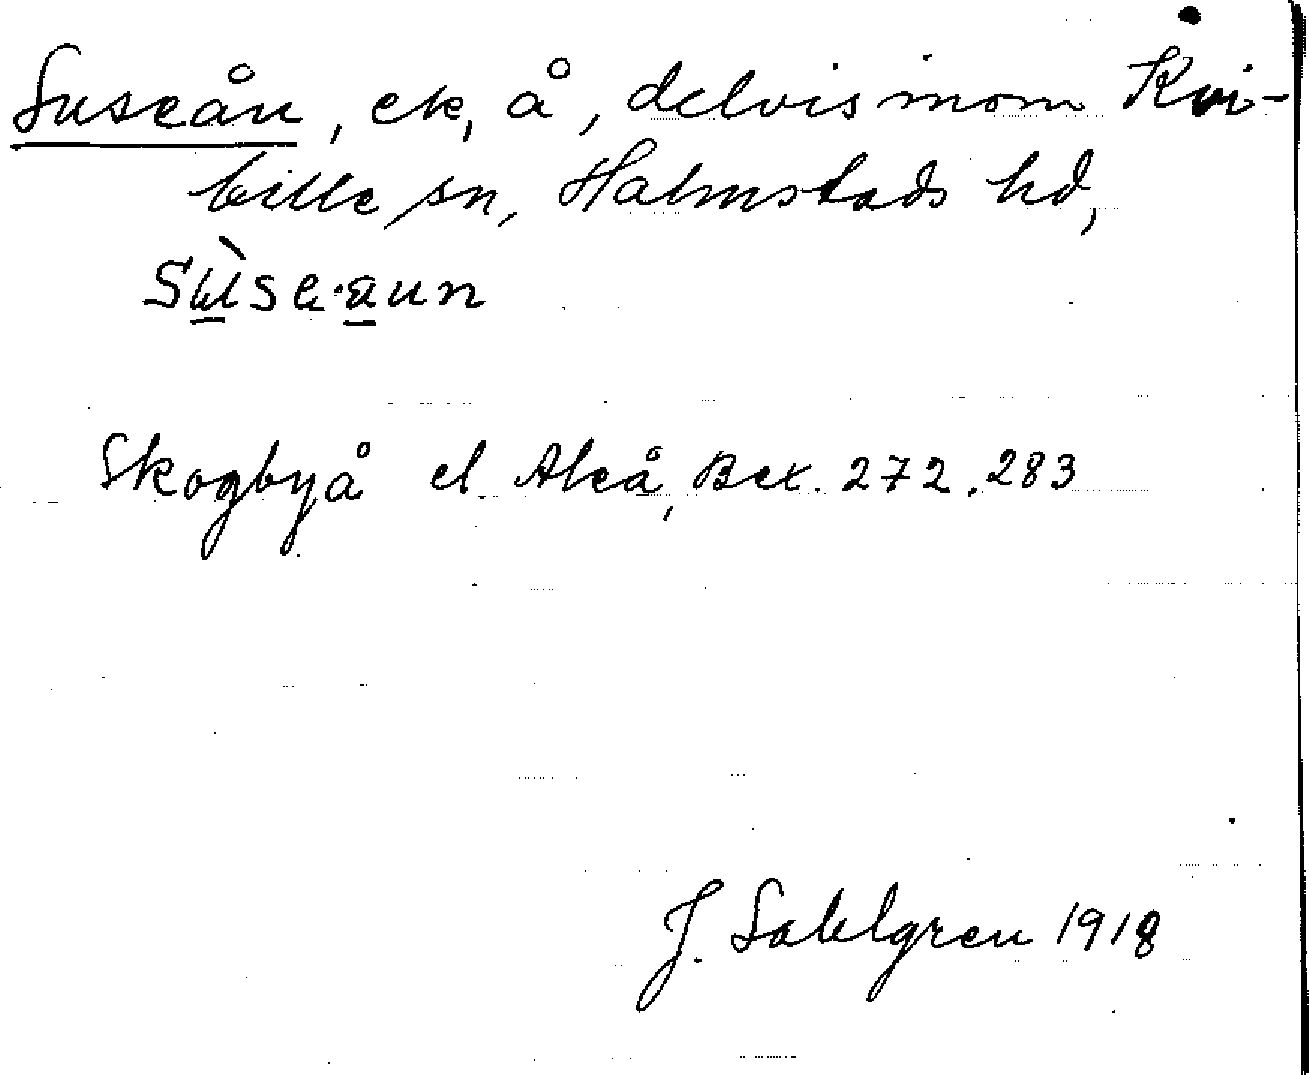 Suseån, ek, å, delvis inom Kvi-
bille sn, Halmstads hd,
Skogbyå el. Aleå, Bex. 272. 283
J. Sahlgren 1918